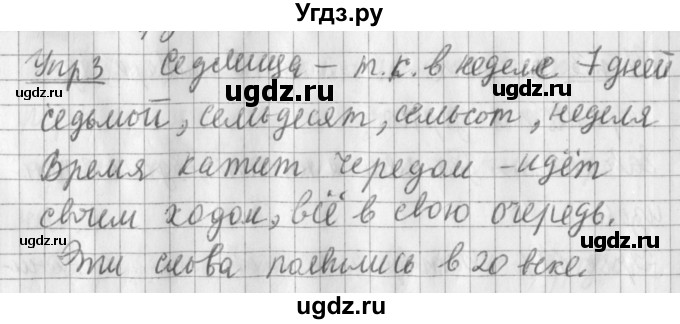 Угдз.ру
Упр 3 Седмица – т.к. в неделе 7 дней
седьмой, семьдесят, семьсот, неделя
Время катит чередом – идёт
своем ходом, всё в свою очередь.
Эти слова появились в 20 веке.
ugdz.ru
ugdz.ru
ugdz.ru
ugdz.ru
ugdz.ru
ugdz.ru
ugdz.ru
ugdz.ru